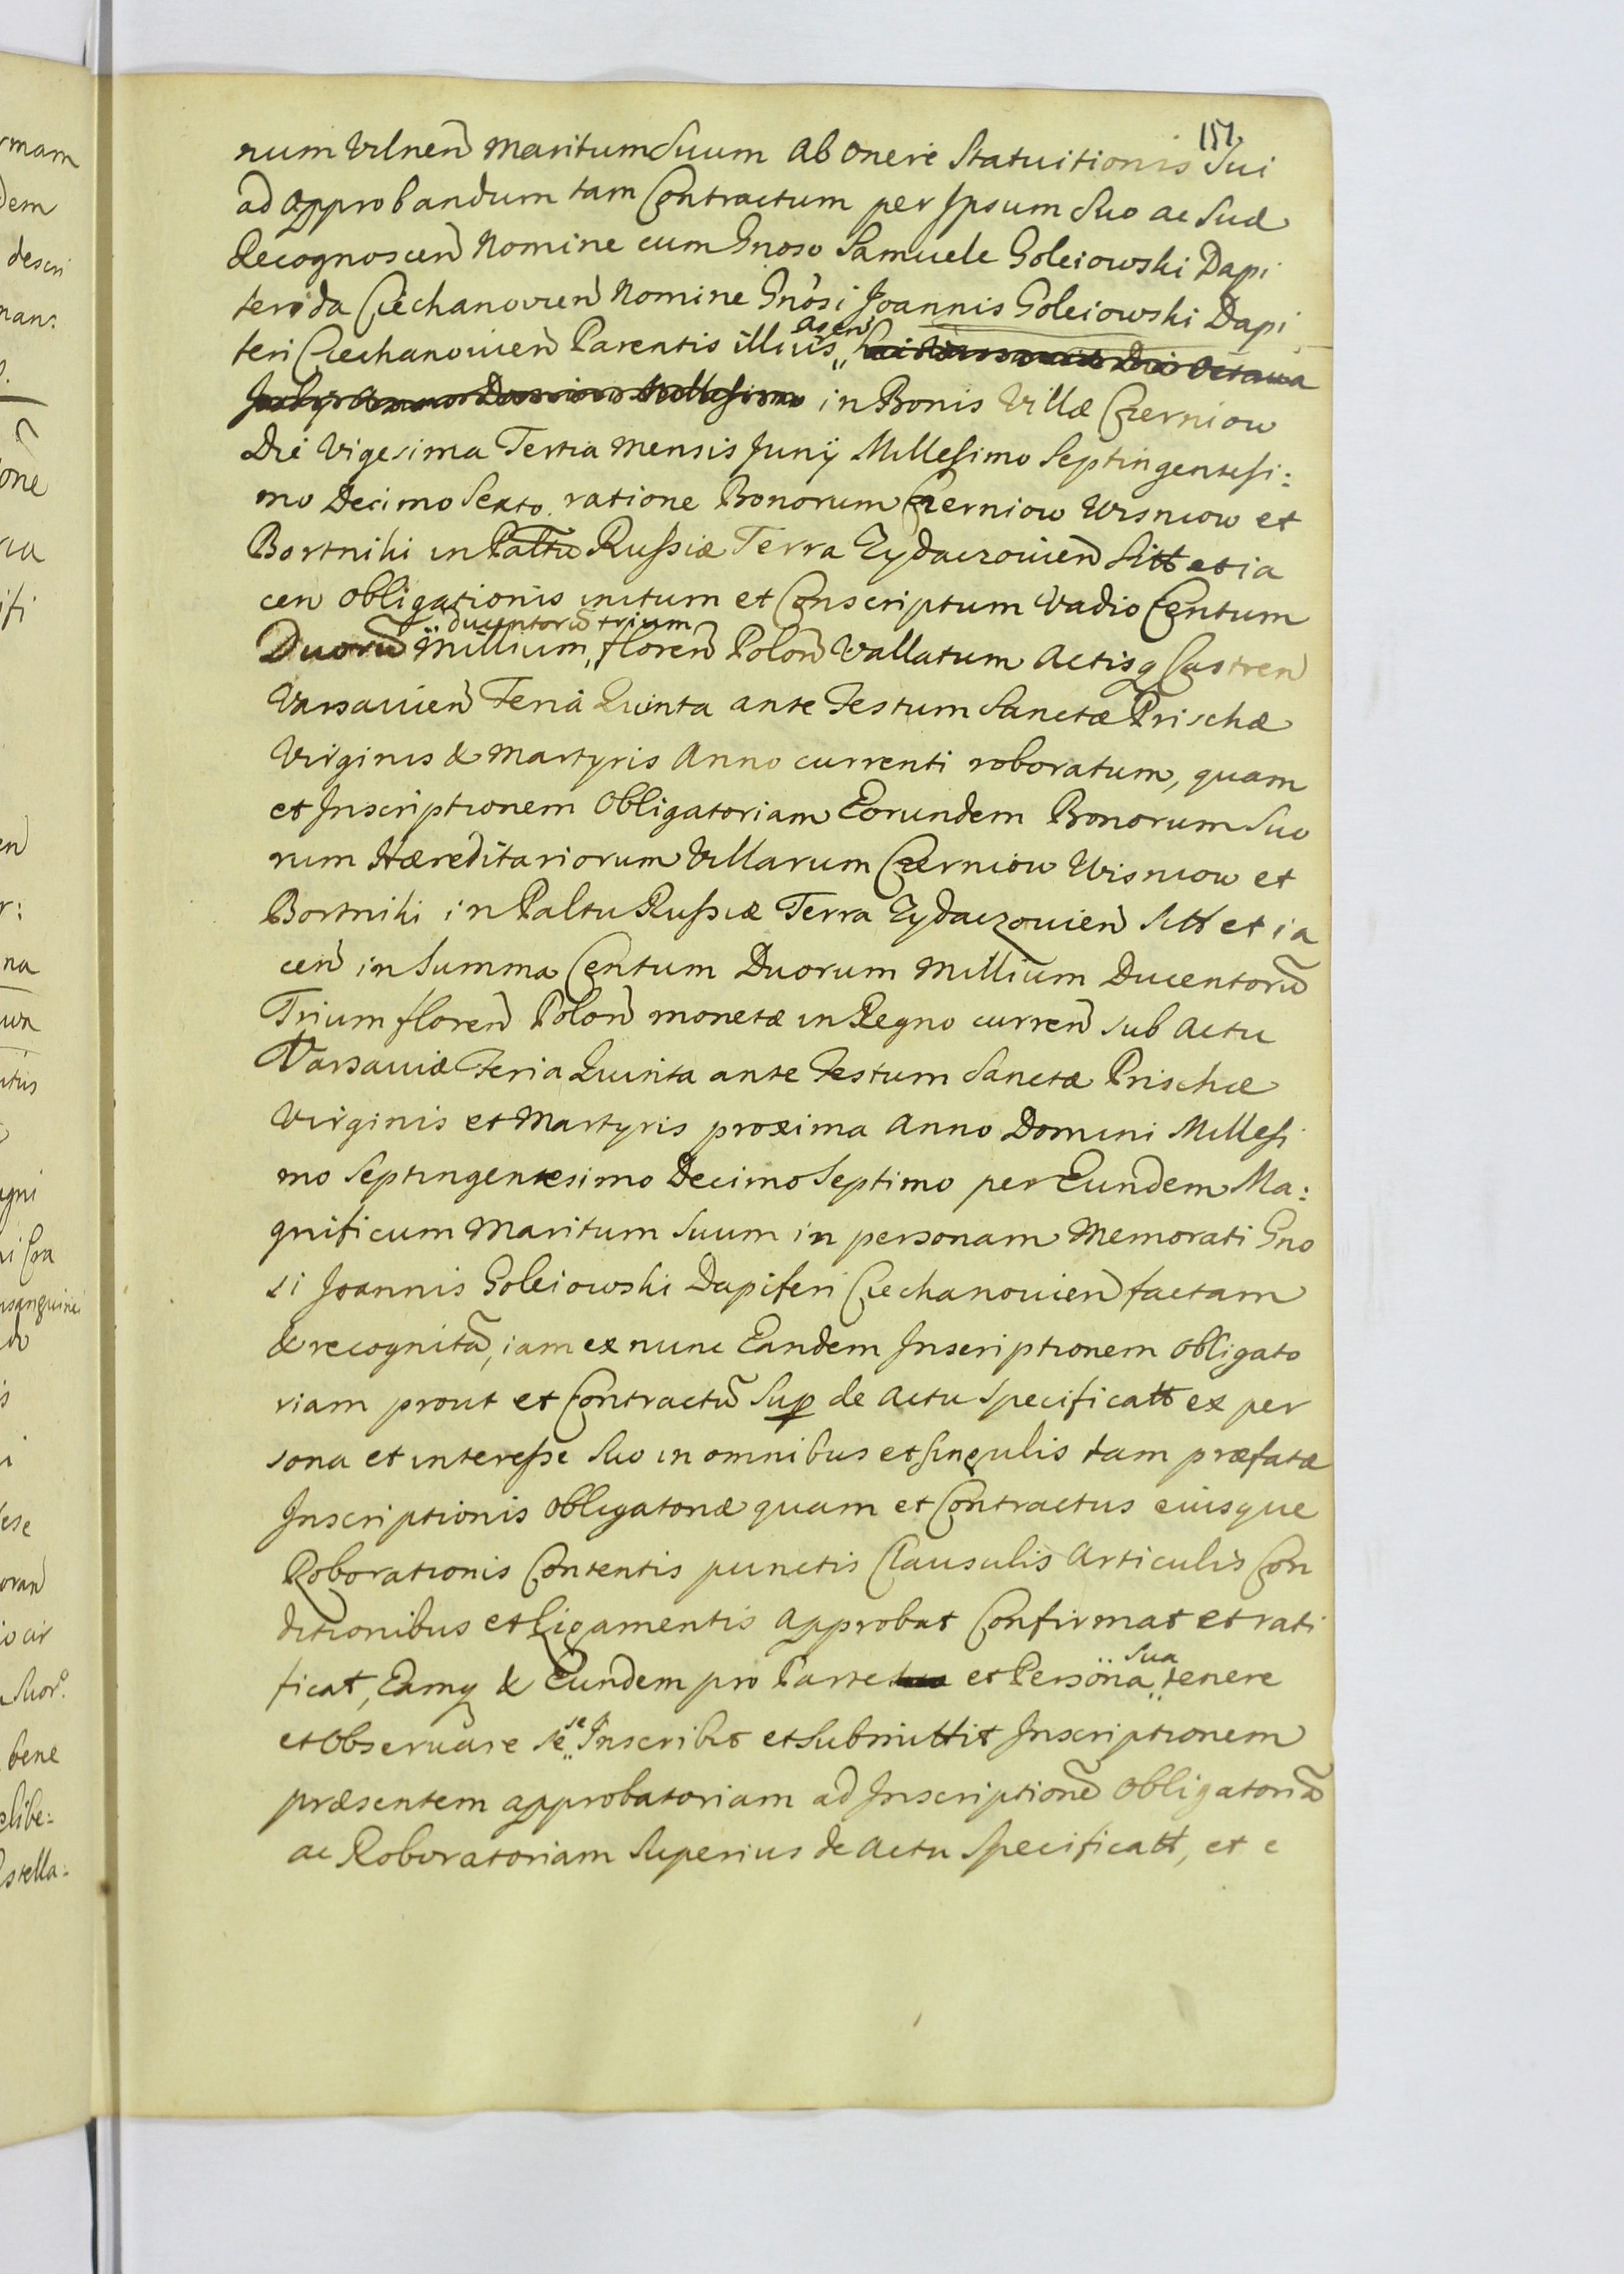 151
num Vilnen Maritum Suum ab onere Statuitionis Sui
ad approbandum tam Contractum per Ipsum Suo ac Suæ
Recognoscen Nomine cum Gnoso Samuele Goleiowski Dapi
ferida Ciechanovien Nomine Gnosi Joannis Goleiowski Dapi
feri Ciechanouien Parentis illius agen Die Octaua
Anno Domino Millesimo in Bonis Villæ Czerniow
Die Vigesima Tertia Mensis Junÿ Millesimo Septingentesi:
mo Decimo Sexto ratione Bonorum Czerniow Wisniow et
Bortniki in Palttu Russiæ Terra Zydaczouien Sitt et ia
cen obligationis initum et Conscriptum Vadio Centum
Duorũ Millium ducentorũ trium floren Polon Vallatum Actisq Castren
Varsauien Feria Quinta ante Festum Sanctæ Prischæ
Virginis & Martyris Anno currenti roboratum, quam
et Inscriptionem Obligatoriam Eorundem Bonorum Suo
rum Hæreditariorum Villarum Czerniow Wisniow et
Bortniki in Palttu Russiæ Terra Zydaczouien Sitt et ia
cen in Summa Centum Duorum Millium Ducentorũ
Trium floren Polon monetæ in Regno curren sub Actu
Varsauiæ Feria Quinta ante Festum Sanctæ Prischæ
Virginis et Martyris proxima Anno Domini Millesi
mo Septingentesimo Decimo Septimo per Eundem Ma:
gnificum Maritum Suum in personam Memorati Gno
si Joannis Goleiowski Dapiferi Ciechanouien factam
& recognitã, iam ex nunc Eandem Inscriptionem obligato
riam prout et Contractũ Sup de Actu specificatt ex per
sona et interesse Suo in omnibus et singulis tam præfatæ
Inscriptionis obligatoriæ quam et Contractus eiusque
Roborationis Contentis punctis Clausulis Articulis Con
ditionibus et Ligamentis approbat Confirmat et rati
ficat, Eamq & Eundem pro Parte et Persona Sua tenere
et observare se se Inscribit et Submittit Inscriptionem
præsentem approbatoriam ad Inscriptionẽ Obligatoriã
ac Roboratoriam Superius de Actu Specificatt, et e